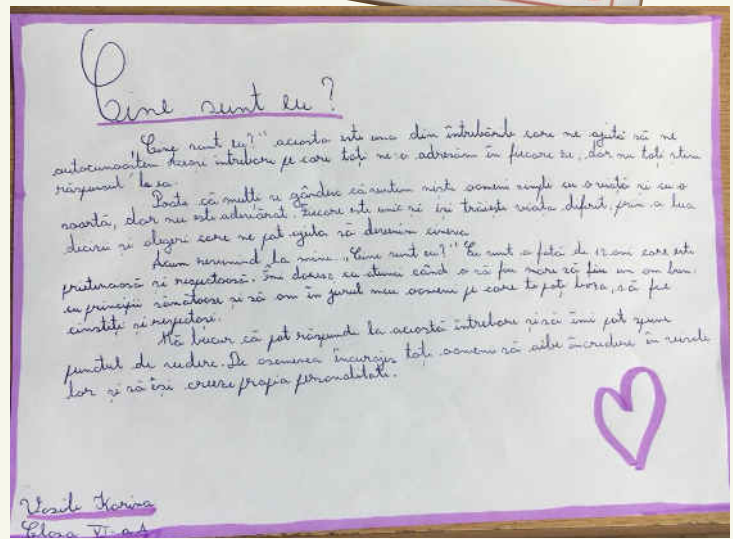 Cine sunt eu?
„Cine sunt eu?" aceasta este una din întrebările care ne ajută să ne
autocunoaștem. Aceași întrebare pe care toți ne-o adresăm în fiecare zi, dar nu toți știm
răspunsul la ea.
Poate că mulți se gândesc că suntem niște oameni simpli cu o viață și cu o
soartă, dar nu este adevărat. Fiecare este unic și își trăiește viața diferit, prin a lua
decizii și alegeri care ne pot ajuta să devenim cineva.
Acum revenind la mine „Cine sunt eu?" Eu sunt o fată de 12 ani care este
prietenoasă și respectoasă. Îmi doresc ca atunci când o să fiu mare să fiu un om bun.
cu principii sănătoase și să am în jurul meu oameni pe care te poți baza, să fie
cinstiți și respectoși.
Mă bucur că pot răspunde la această întrebare și să îmi pot spune
punctul de vedere. De asemenea încurajez toți oamenii să aibe încredere în visele
lor și să își creeze propia personalitate.
Vasile Karina
Clasa VI-a A